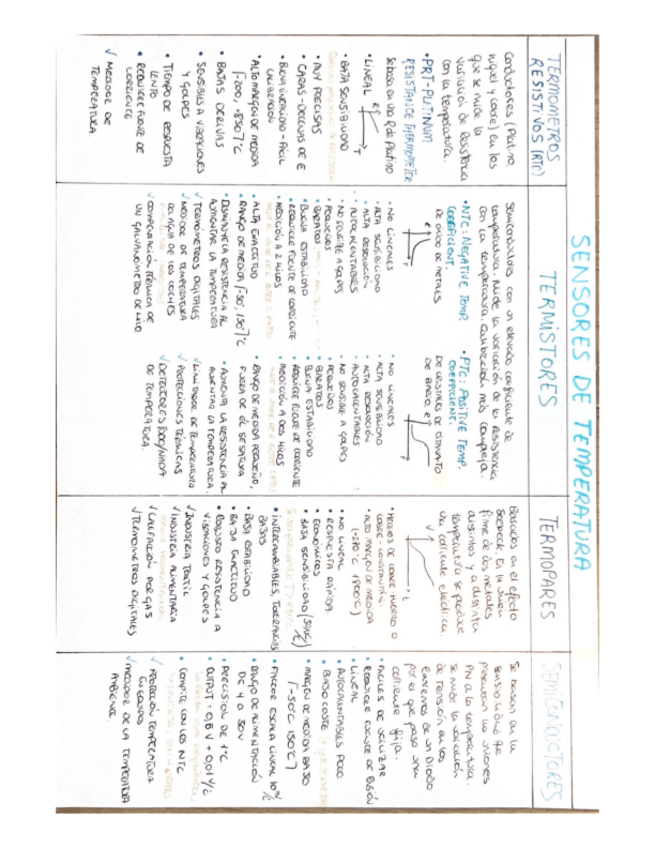 SENSORES DE TEMPERATURA
TERMOMETROS
RESISTIVOS (RTD)
Conductores (Platino,
níquel y cobre) en los
que se mide la
variación de Resistencia
con la temperatura.
• PRT - PLATINUM
RESISTANCE THERMOMETER
Se basa en una R de Platino
• LINEAL
• BAJA SENSIBILIDAD
• MUY PRECISAS
• CARAS - DECENAS DE €
• BUENA LINEALIDAD - FÁCIL
CALIBRACIÓN
• ALTO MARGEN DE MEDIDA
• BAJAS DERIVAS
• SENSIBLES A VIBRACIONES
Y GOLPES
• TIEMPO DE RESPUESTA
LENTO
• REQUIERE FUENTE DE
CORRIENTE
✓ MEDIDOR DE
TEMPERATURA
TERMISTORES
Semiconductores con un elevado coeficiente de
temperatura. Mide la variación de la Resistencia
con la temperatura. Calibración más compleja.
• NTC: NEGATIVE TEMP.
COEFFICIENT.
DE OXIDO DE METALES
• NO LINEALES
• ALTA SENSIBILIDAD
• ALTA RESOLUCIÓN
• AUTOCALENTABLES
• NO SENSIBLE A GOLPES
• PEQUEÑOS
• BARATOS
• BUENA ESTABILIDAD
• REQUIERE FUENTE DE CORRIENTE
• MEDICIÓN A 2 HILOS
• ALTA EXACTITUD
• RANGO DE MEDIDA [-50, 150°C
• DISMINUYE LA RESISTENCIA AL
AUMENTAR LA TEMPERATURA
✓ TERMÓMETROS DIGITALES
✓ MEDIDOR DE TEMPERATURA
DEL AGUA DE LOS COCHES
✓ COMPENSACIÓN TÉRMICA DE
UN GALVANÓMETRO DE HILO
• PTC: POSITIVE TEMP.
COEFFICIENT.
DE CRISTALES DE TITANATO
DE BARIO
• NO LINEALES
• ALTA SENSIBILIDAD
• ALTA RESOLUCIÓN
• AUTOCALENTABLES
• NO SENSIBLE A GOLPES
• PEQUEÑOS
• BARATOS
• BUENA ESTABILIDAD
• REQUIERE FUENTE DE CORRIENTE
• MEDICIÓN A DOS HILOS
• RANGO DE MEDIDA PEQUEÑO,
FUERA DE ÉL SE SATURA
• AUMENTA LA RESISTENCIA AL
AUMENTAR LA TEMPERATURA.
✓ LIMITADOR DE TEMPERATURA
✓ PROTECCIONES TÉRMICAS
✓ DETECTORES TODO/NADA
DE TEMPERATURA.
TERMOPARES
Basados en el efecto
Seebeck. En la unión
firme de dos metales
distintos y a distinta
temperatura se produce
una corriente eléctrica.
• HECHOS DE COBRE-HIERRO O
COBRE - CONSTANTÁN.
• ALTO MARGEN DE MEDIDA
• NO LINEAL
• RESPUESTA RÁPIDA.
• ECONÓMICOS
• BAJA SENSIBILIDAD
• INTERCAMBIABLES, TOLERANCIAS
BAJAS
• BAJA ESTABILIDAD
• BAJA EXACTITUD
• ROBUSTO RESISTENCIA A
VIBRACIONES Y GOLPES
✓ INDUSTRIA TEXTIL
✓ INDUSTRIA ALIMENTARIA
✓ CALEFACCIÓN POR GAS
✓ TERMÓMETROS DIGITALES
SEMICONDUCTORES
Se basan en la
sensibilidad que
presentan las uniones
PN a la temperatura.
Se mide la variación
de Tensión en los
extremos de un Diodo
por el que pasa una
corriente fija.
• FÁCILES DE UTILIZAR
• REQUIERE FUENTE DE TENSIÓN
• LINEAL
• AUTOCALENTABLES POCO
• BAJO COSTE
• MARGEN DE MEDIDA BAJO
[-50°C 150°C]
• FACTOR ESCALA LINEAL
• RANGO DE ALIMENTACIÓN
DE 4 a 30V
• PRECISIÓN DE 1°C
• COMPITE CON LOS NTC
✓ PROTECCIÓN TEMPERATURA
✓ MEDIDOR DE LA TEMPERATURA
AMBIENTE